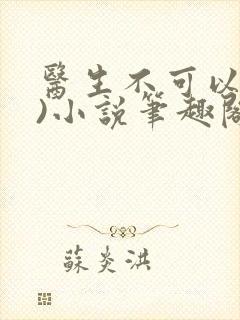 醫生不可以
)小說筆趣閣
蘇炎洪